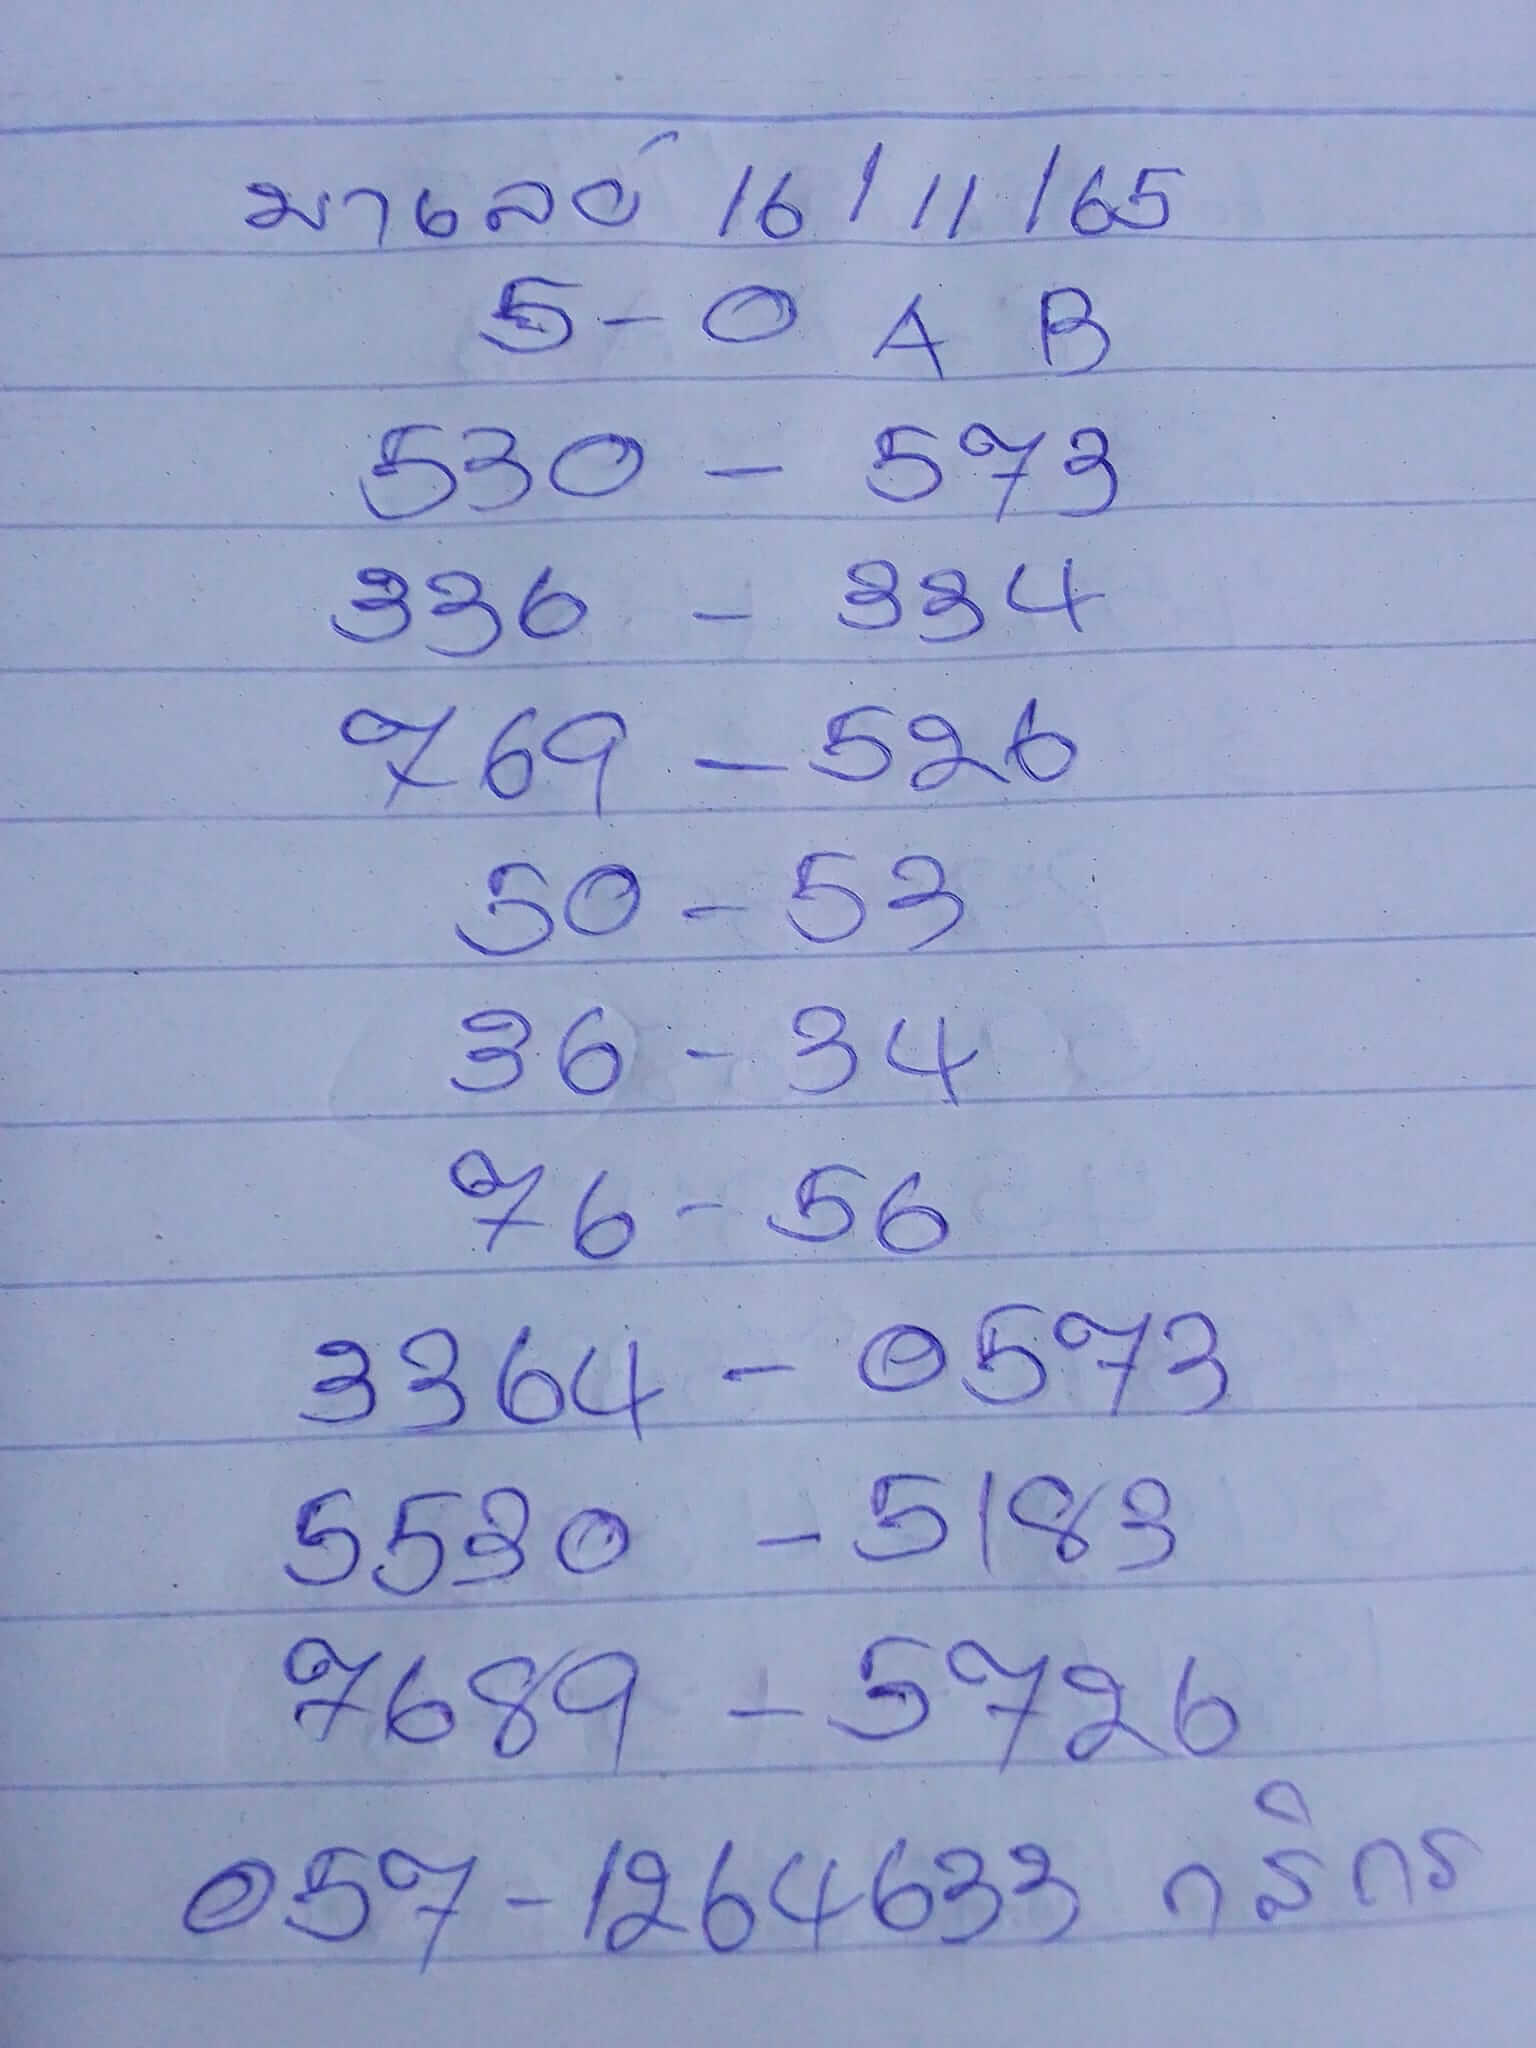 มาเลย์ 16/11/65
5-0 A B
530 - 573
336 - 334
769 - 526
50 - 53
36 - 34
76 - 56
3364 - 0573
5530 - 5183
7689 - 5726
057-1264633 กสิกร